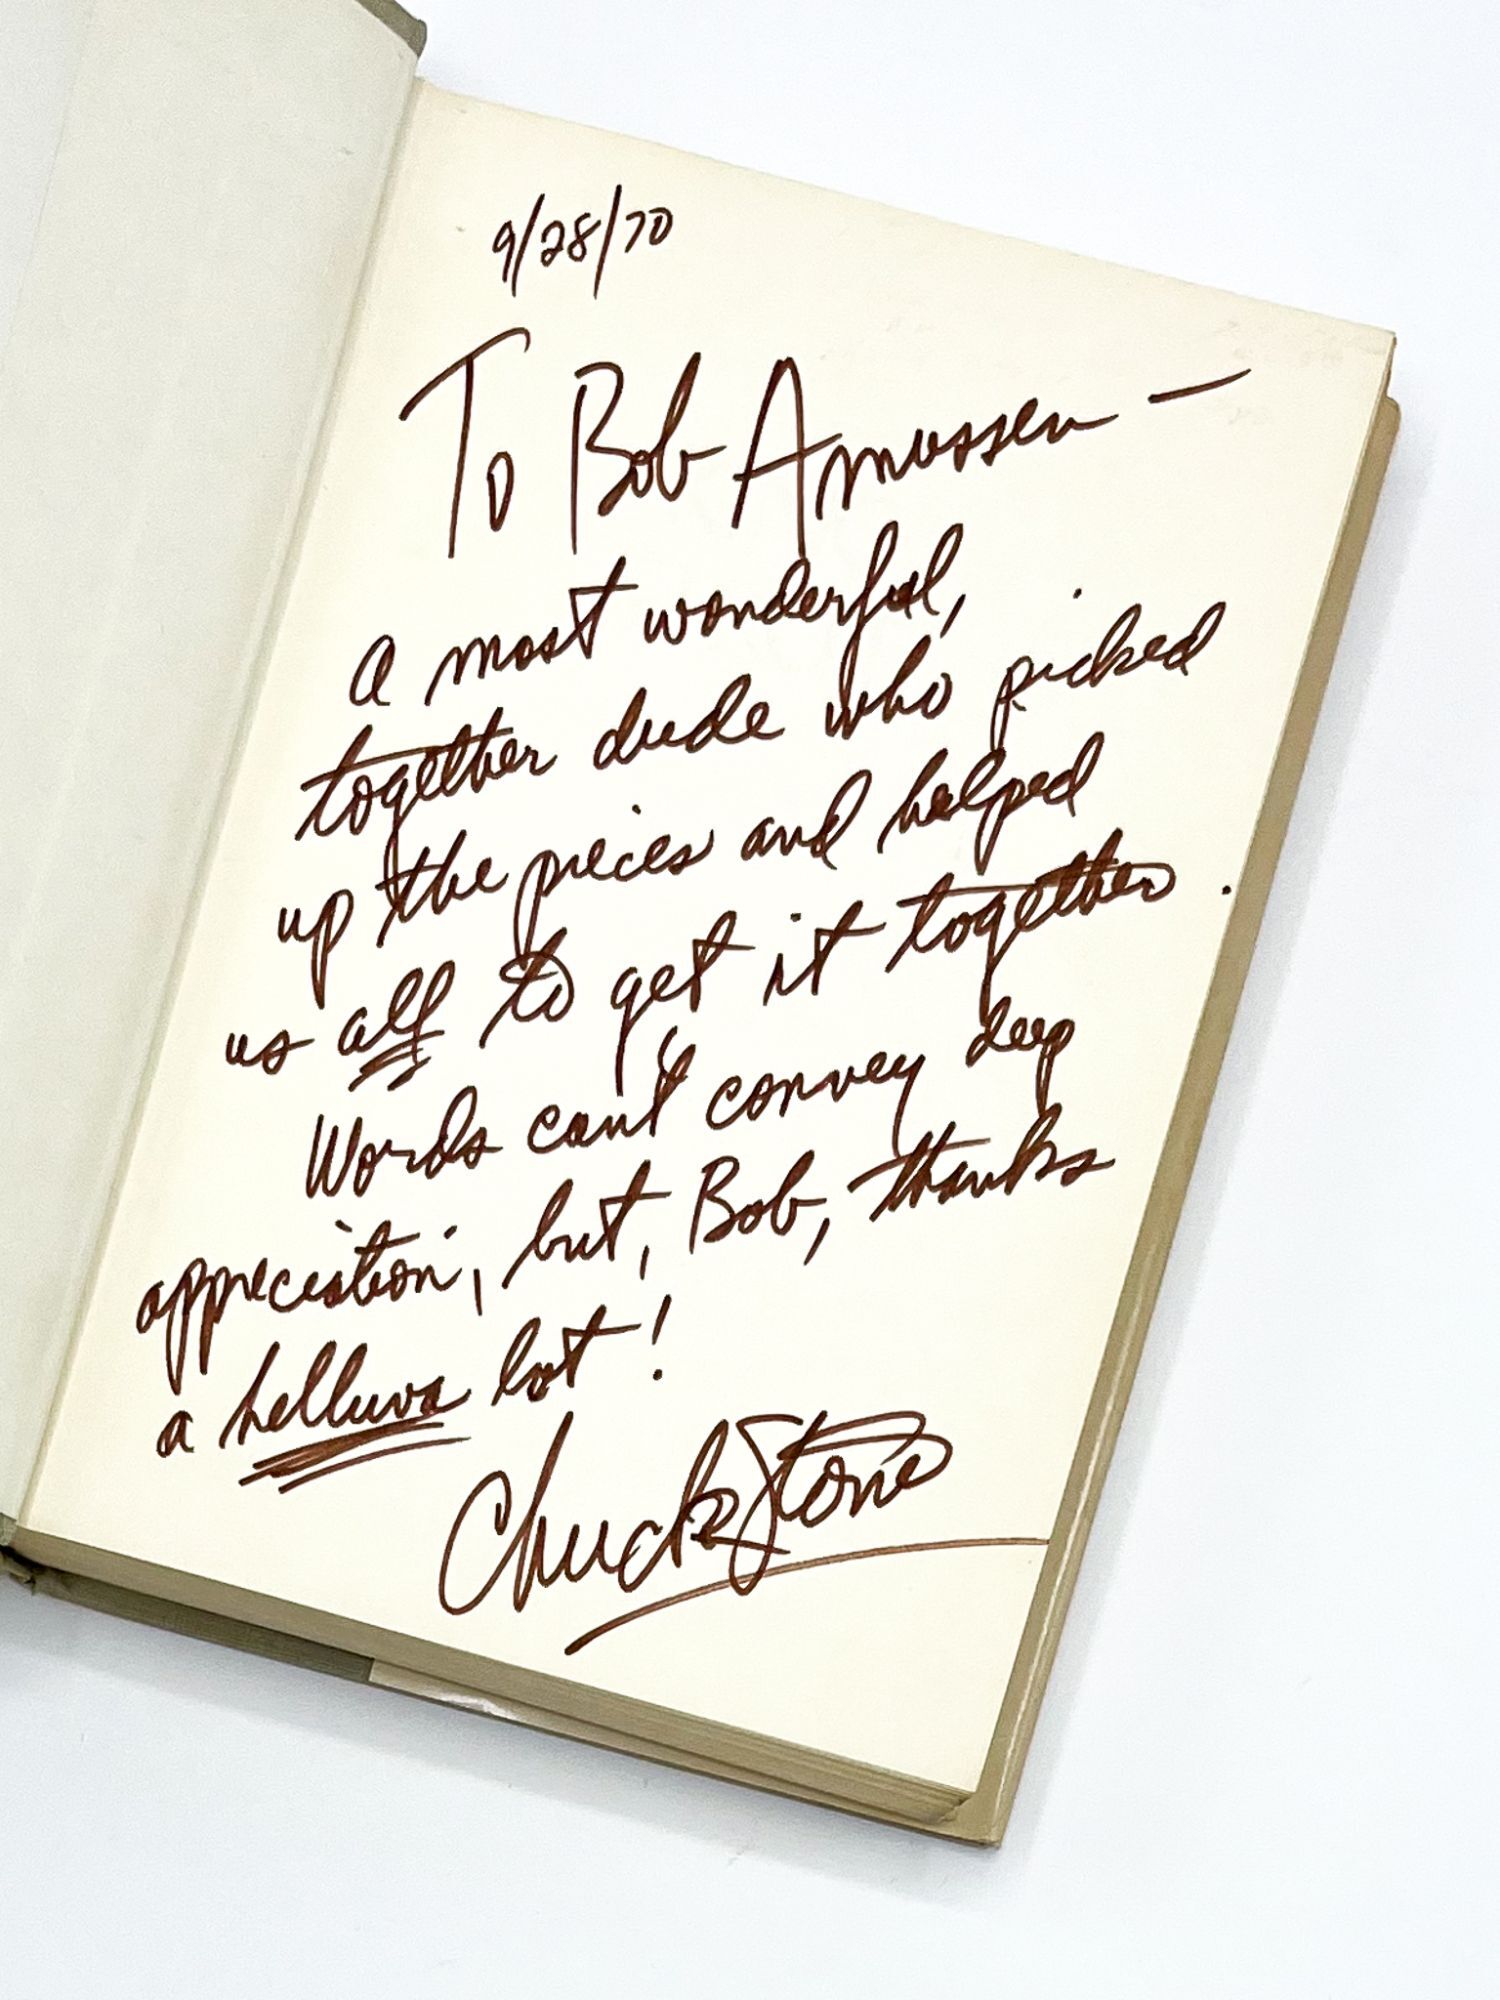 9/28/70
To Bob Amussen —
a most wonderful,
together dude who picked
up the pieces and helped
us all to get it together.
Words can't convey deep
appreciation, but, Bob, thanks
a helluva lot!
Chuck Stone